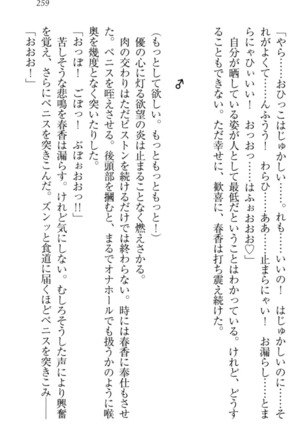 259
「やら……おひっこはじゅかしい……。れも……いいの！　はじゅかしいのに……とま
おがよくてぇ……んふぅう！　わらひ……ああ……止まらにゃい！　お漏らし……とま
らにゃひぃいい！　おっおっ……はふぉおおお♡」
自分が晒している姿が人として最低だということはわかっている。けれど、どうす
ることもできない。ただ幸せに、歓喜に、春香は打ち震え続けた。
♂
（もっとして欲しい。もっともっともっと！）
優の心に灯る欲望の炎は止まることなく燃えさかる。
肉の交わりはただピストンを続けるだけでは終わらない。時には春香に奉仕もさせ
た。ペニスを咥えさせる。後頭部を摑むと、まるでオナホールでも扱うかのように喉
奥を幾度となく突いたりした。
「おっぽ！　ごっぽ！　ぶぽぉおおっ!!」
苦しそうな悲鳴を春香は漏らす。けれど気にしない。むしろそうした声により興奮
を覚え、さらにペニスを突きこんだ。ズンッと食道に届くほどペニスを突きこみ――
「おおお！」